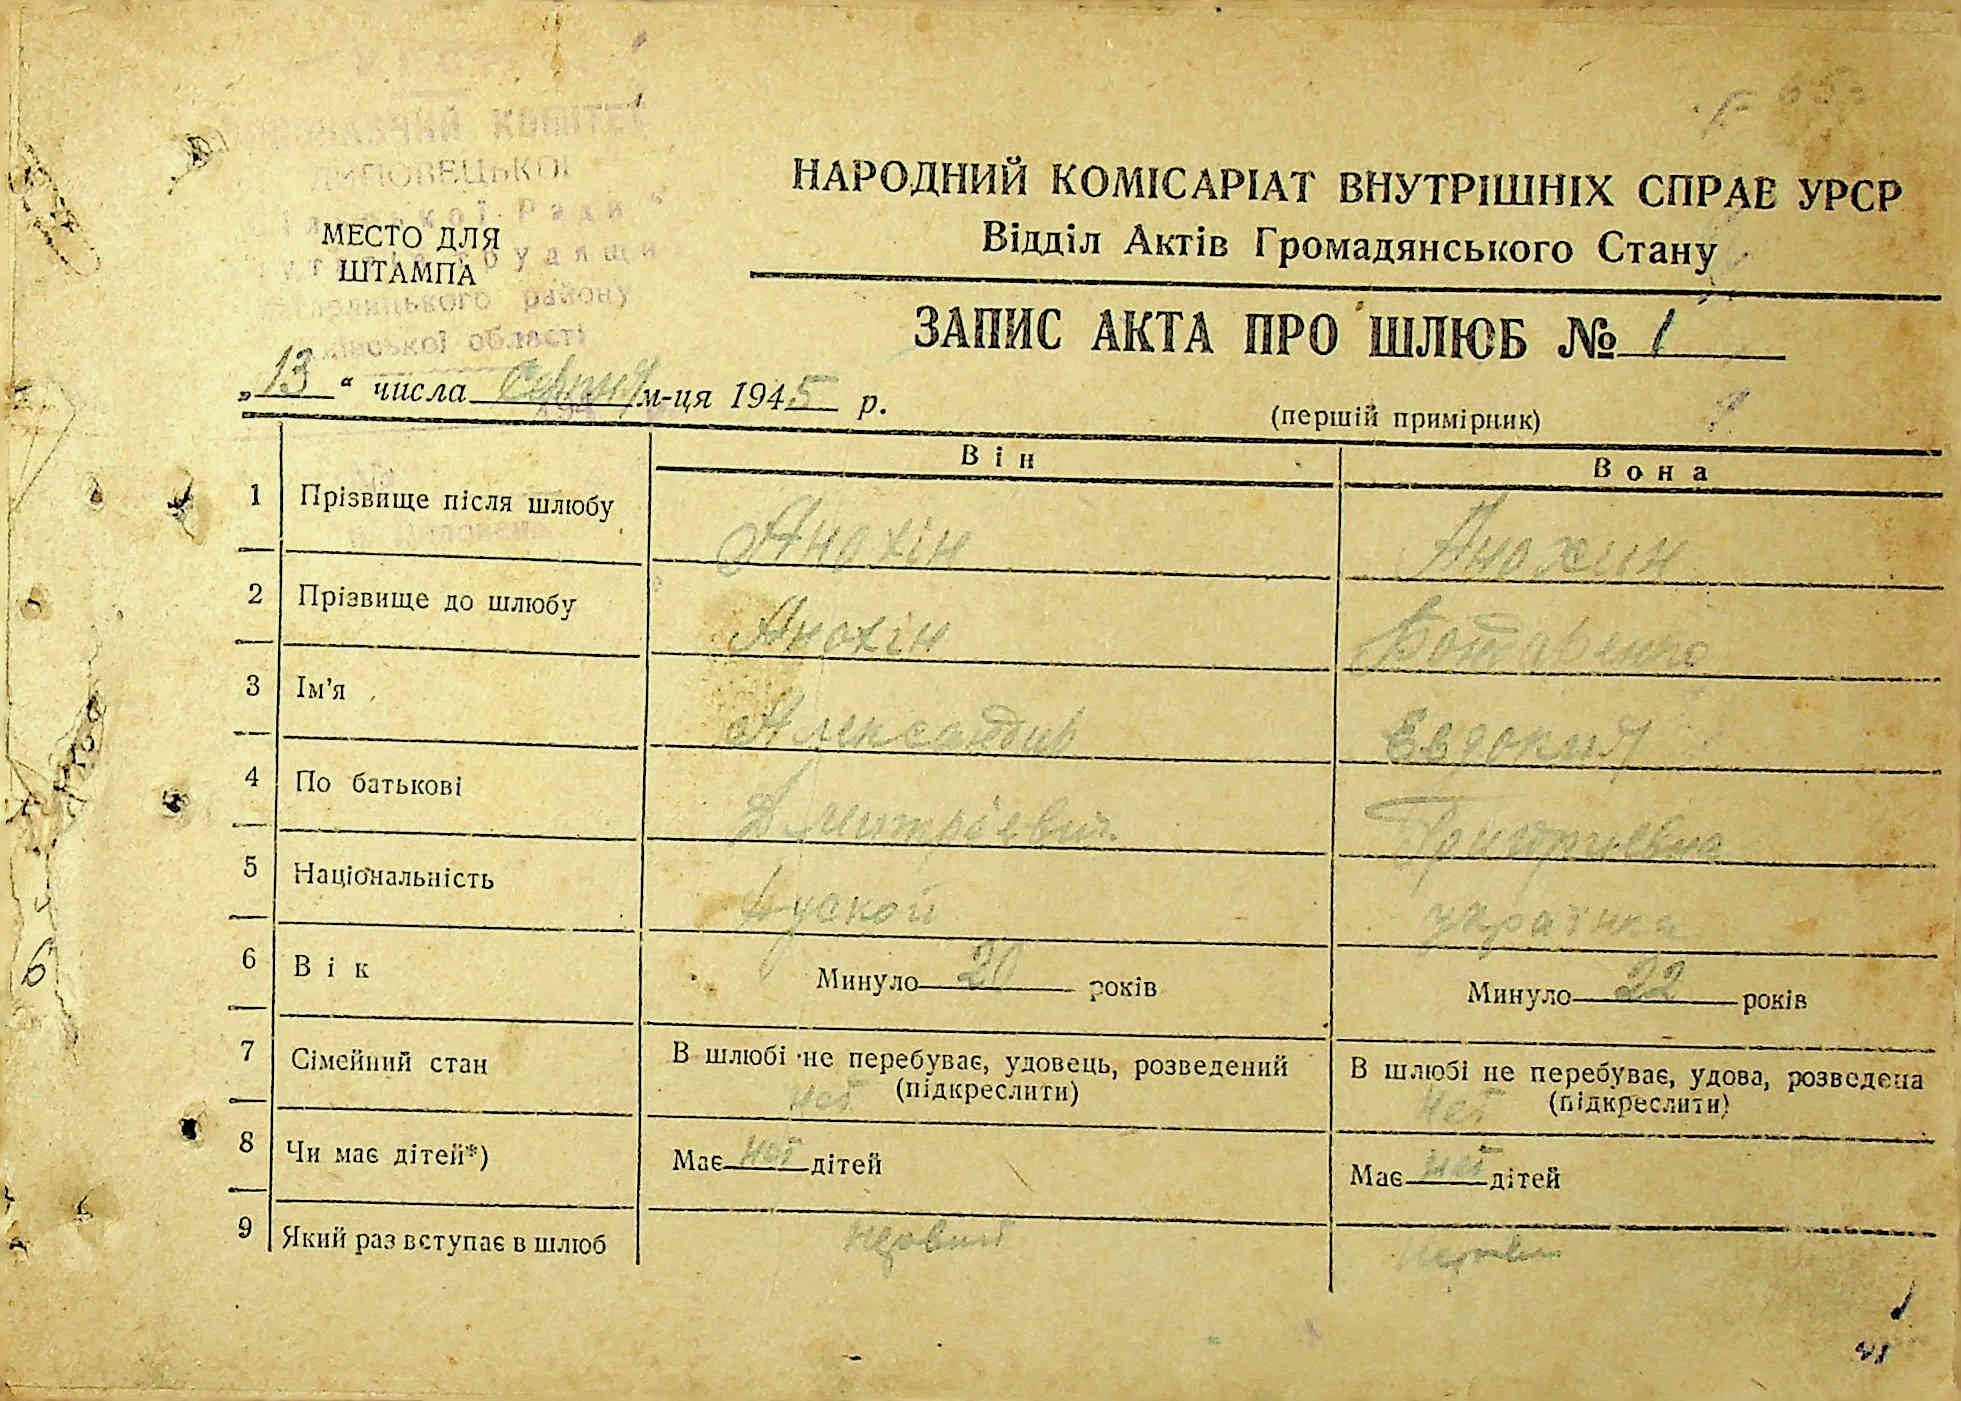 КОМІТЕТ
ЛИПОВЕЦЬКОЇ
Ради
МЕСТО ДЛЯ
ШТАМПА
району
області
НАРОДНИЙ КОМІСАРІАТ ВНУТРІШНІХ СПРАВ УРСР
Відділ Актів Громадянського Стану
ЗАПИС АКТА ПРО ШЛЮБ № 1
„13“ числа серпня м-ця 1945 р.
(першій примірник)
Він
Вона
1 Прізвище після шлюбу Анохін Анохин
2 Прізвище до шлюбу Анохін
3 Ім'я Александр Евдокия
4 По батькові Дмитріевич Григоргиевна
5 Національність руской українка
6 Вік Минуло 20 років Минуло 22 років
7 Сімейний стан В шлюбі не перебуває, удовець, розведений В шлюбі не перебуває, удова, розведена
нет (підкреслити) нет (підкреслити)
8 Чи має дітей*) Має нет дітей Має нет дітей
9 Який раз вступає в шлюб первий
6